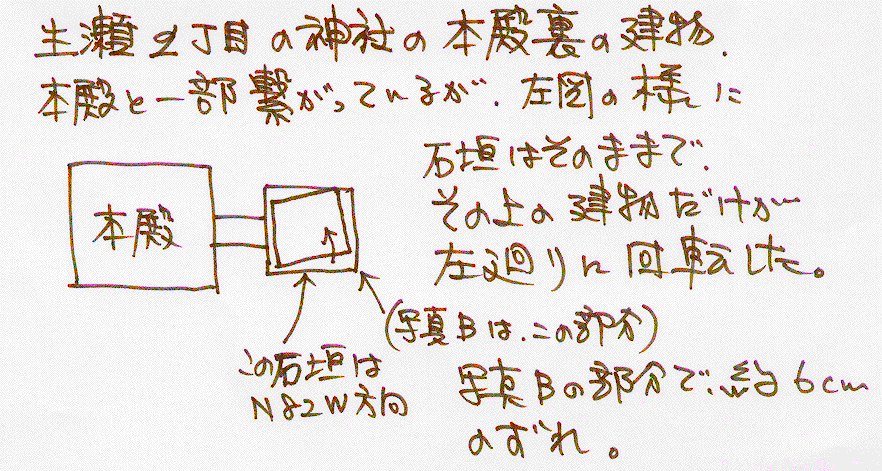 生瀬2丁目の神社の本殿裏の建物.
本殿と一部繋がっているが.左図の様に
石垣はそのままで.
その上の建物だけが
左廻りに回転した。
本殿
(写真Bは.この部分)
この石垣は
N82W方向
写真Bの部分で.約6cm
のずれ。